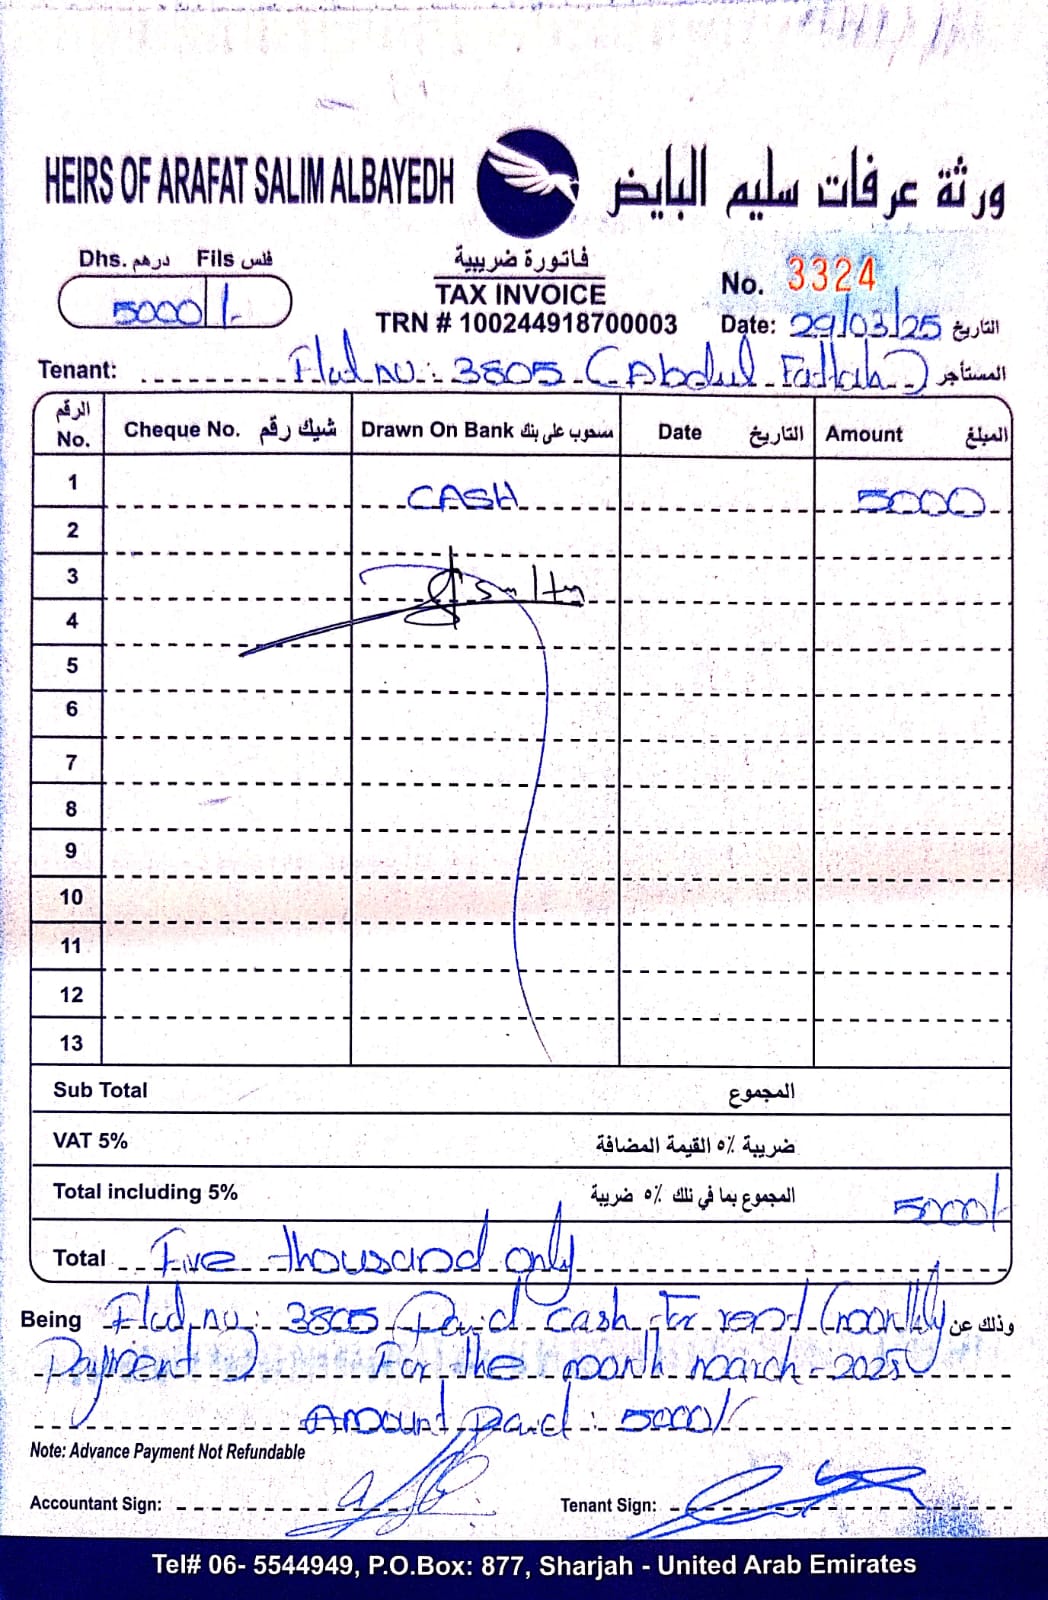 HEIRS OF ARAFAT SALIM ALBAYEDH ورثة عرفات سليم البايض
Dhs. درهم Fils فلس
5000/-
فاتورة ضريبية
TAX INVOICE
TRN # 100244918700003
No. 3324
Date: 29/03/25 التاريخ
Tenant: Flat NU: 3805 (Abdul Fattah) المستأجر
الرقم No. Cheque No. شيك رقم Drawn On Bank مسحوب على بنك Date التاريخ Amount المبلغ
1 CASH 5000
2
3
4
5
6
7
8
9
10
11
12
13
Sub Total المجموع
VAT 5% ضريبة ٥٪ القيمة المضافة
Total including 5% المجموع بما في ذلك ٥٪ ضريبة 5000/-
Total Five thousand only
Being Flat NU: 3805 Paid cash for rent (monthly وذلك عن
Payment) For the month march-2025
Amount Paid: 5000/-
Note: Advance Payment Not Refundable
Accountant Sign: Tenant Sign:
Tel# 06- 5544949, P.O.Box: 877, Sharjah - United Arab Emirates